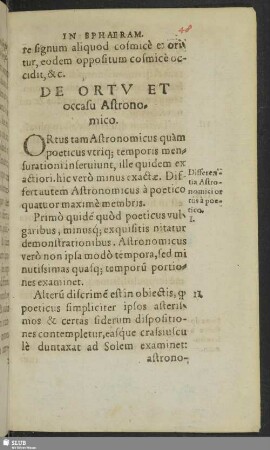 IN SPHAERAM. 48
re signum aliquod cosmicè exoria
tur, eodem oppositum cosmicè oc-
cidit, &c.
DE ORTV ET
occasu Astrono-
mico.
ORtus tam Astronomicus quàm
poeticus vtriq; temporis men-
surationi inseruiunt, ille quidem ex
actiori. hic verò minus exactæ. Dif-
fert autem Astronomicus à poetico
quatuor maximè membris.
Differen-
tia Astro-
nomici or
tus à poe-
tico.
I.
Primò quidẽ quòd poeticus vul-
garibus, minusq; exquisitis nitatur
demonstrationibus. Astronomicus
verò non ipsa modò tempora, sed mi
nutissimas quasq; temporũ portio-
nes examinet.
Alterũ discrimẽ est in obiectis, ꝙ
poeticus simpliciter ipsos asteris-
mos & certas siderum dispositio-
nes contempletur, easque crassiuscu
lè duntaxat ad Solem examinet:
II.
astrono-
SLUB